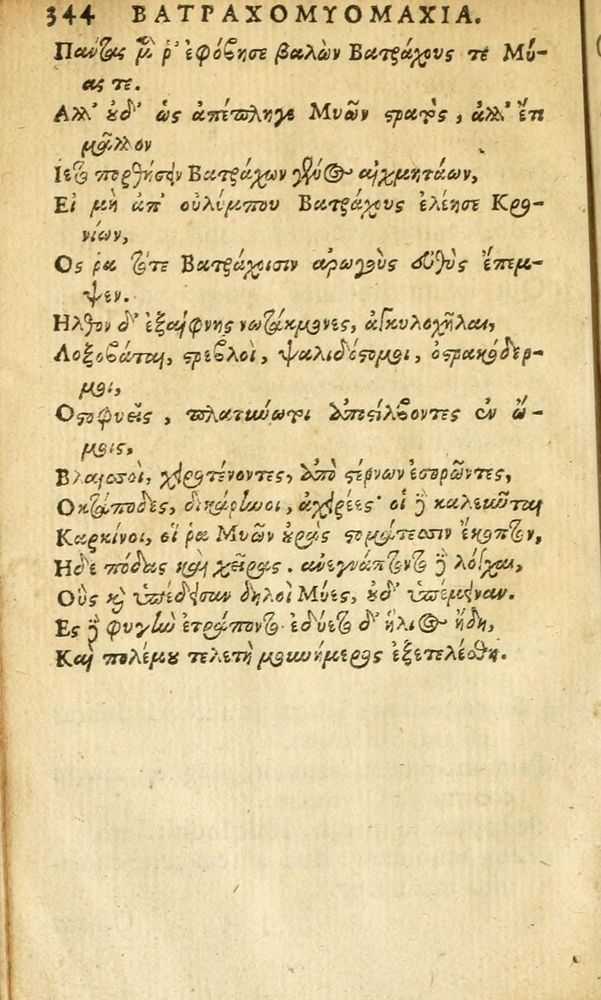 344 ΒΑΤΡΑΧΟΜΥΟΜΑΧΙΑ.
Πάντας μ̂ ῥ' ἐφόβησε βαλὼν Βατράχους τε Μύ-
ας τε.
Αλλ' οὐδ' ὡς ἀπέπληγε Μυῶν στρατὸς, ἀλλ' ἔτι
μᾶλλον
Ιετο πορθήσειν Βατράχων γένος αἰχμητάων,
Εἰ μὴ ἀπ' οὐλύμπου Βατράχους ἐλέησε Κρο-
νίων,
Ος ῥα τότε Βατράχοισιν ἀρωγοὺς εὐθὺς ἔπεμ-
ψεν.
Ηλθον δ' ἐξαίφνης νωτάκμονες, ἀγκυλοχῆλαι,
Λοξοβάται, στρεβλοὶ, ψαλιδόστομοι, ὀστρακόδερ-
μοι,
Οστοφυεῖς, πλατύνωτοι ἀποστίλβοντες ἐν ὤ-
μοις,
Βλαισοὶ, χειροτένοντες, ἀπὸ στέρνων ἐσορῶντες,
Οκτάποδες, δικάρηνοι, ἀχειρέες· οἱ δὲ καλεῦνται
Καρκίνοι, οἵ ῥα Μυῶν οὐρὰς στομάτεσσιν ἔκοπτον,
Ηδὲ πόδας καὶ χεῖρας. ἀνεγνάπτοντο δὲ λόγχαι,
Οὓς καὶ ὑπέδεισαν δηλοὶ Μύες, οὐδ' ὑπέμειναν.
Ες δὲ φυγὴν ἐτράποντο· ἐδύετο δ' ἥλιος ἤδη,
Καὶ πολέμου τελετὴ μονοήμερος ἐξετελέσθη.